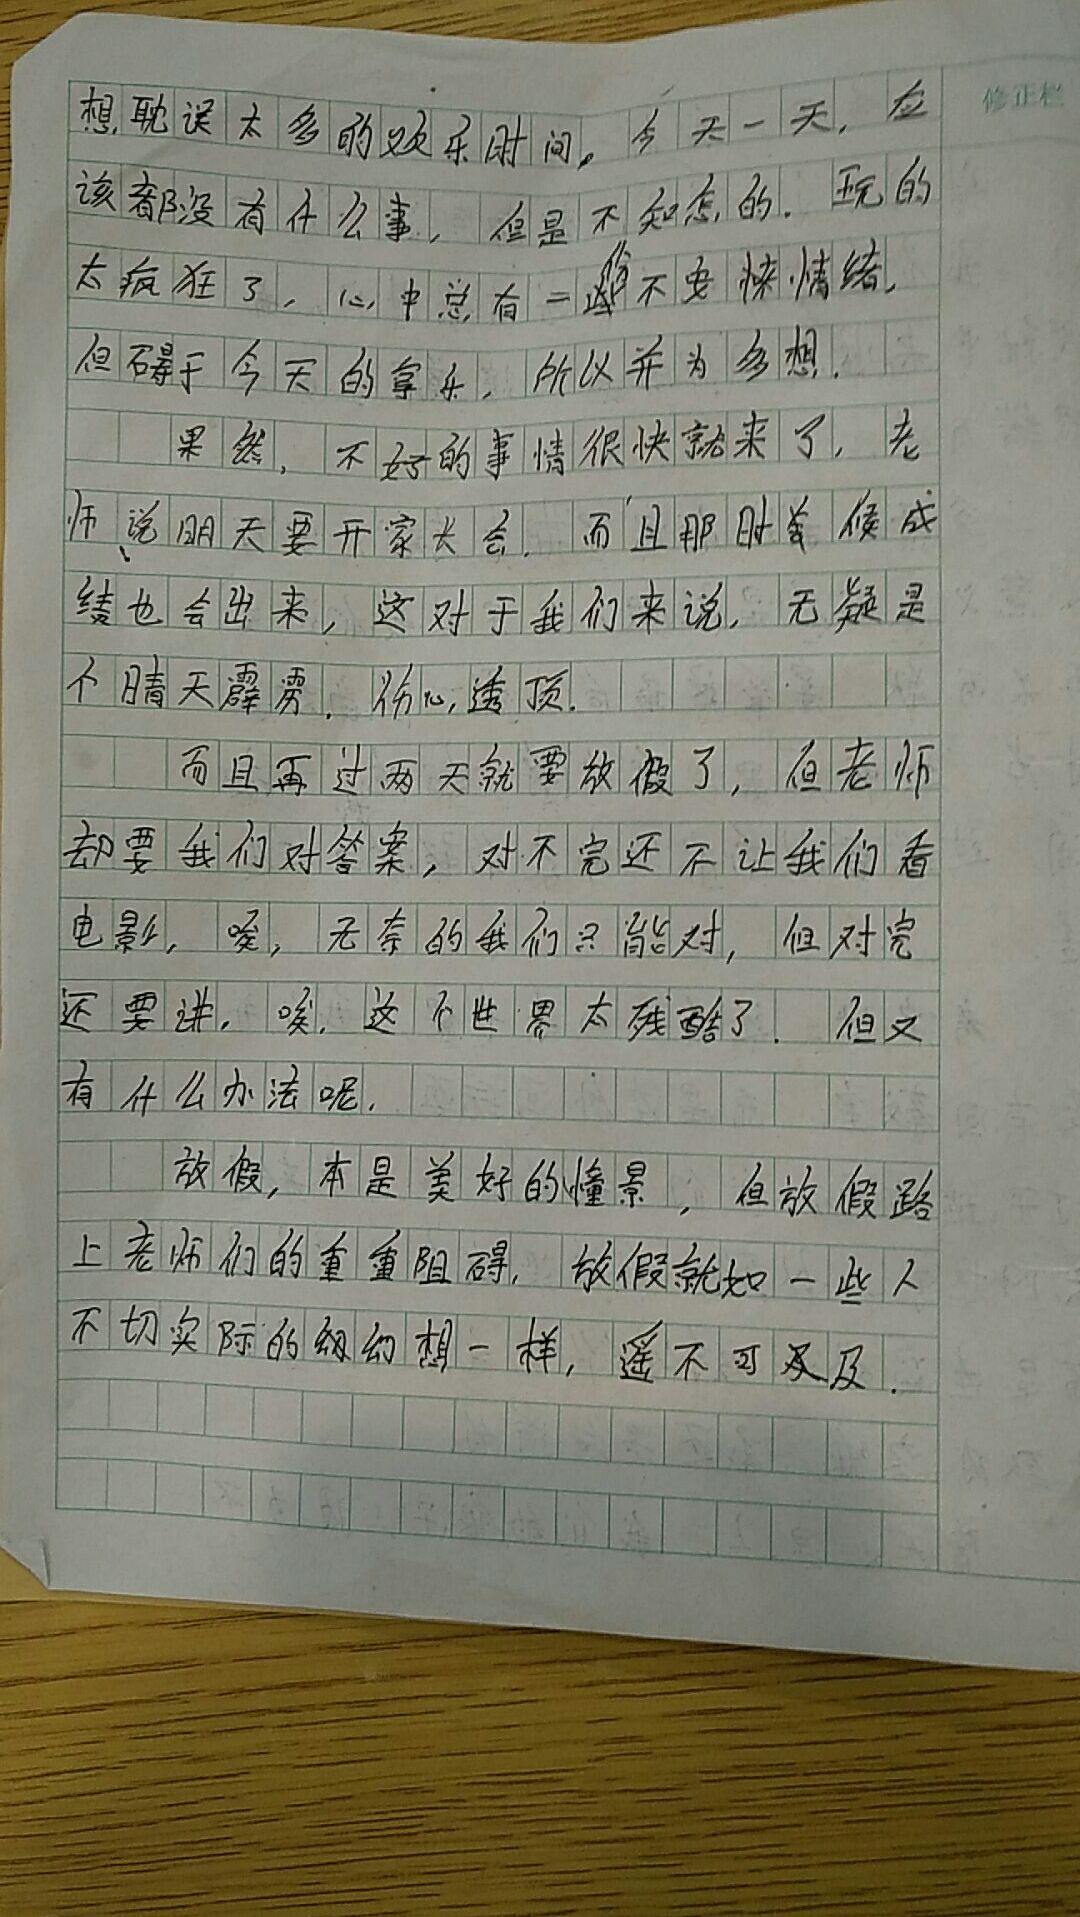 修正栏
想耽误太多的欢乐时间。今天一天，应
该都没有什么事，但是不知怎的．玩的
太疯狂了，心中总有一些不安情绪，
但碍于今天的享乐，所以并为多想．
果然，不好的事情很快就来了，老
师说明天要开家长会．而且那时候成
绩也会出来，这对于我们来说，无疑是
个晴天霹雳．伤心透顶．
而且再过两天就要放假了，但老师
却要我们对答案，对不完还不让我们看
电影，唉，无奈的我们只能对，但对完
还要讲．唉．这个世界太残酷了．但又
有什么办法呢．
放假，本是美好的憧景，但放假路
上老师们的重重阻碍．放假就如一些人
不切实际的幻想一样，遥不可及．